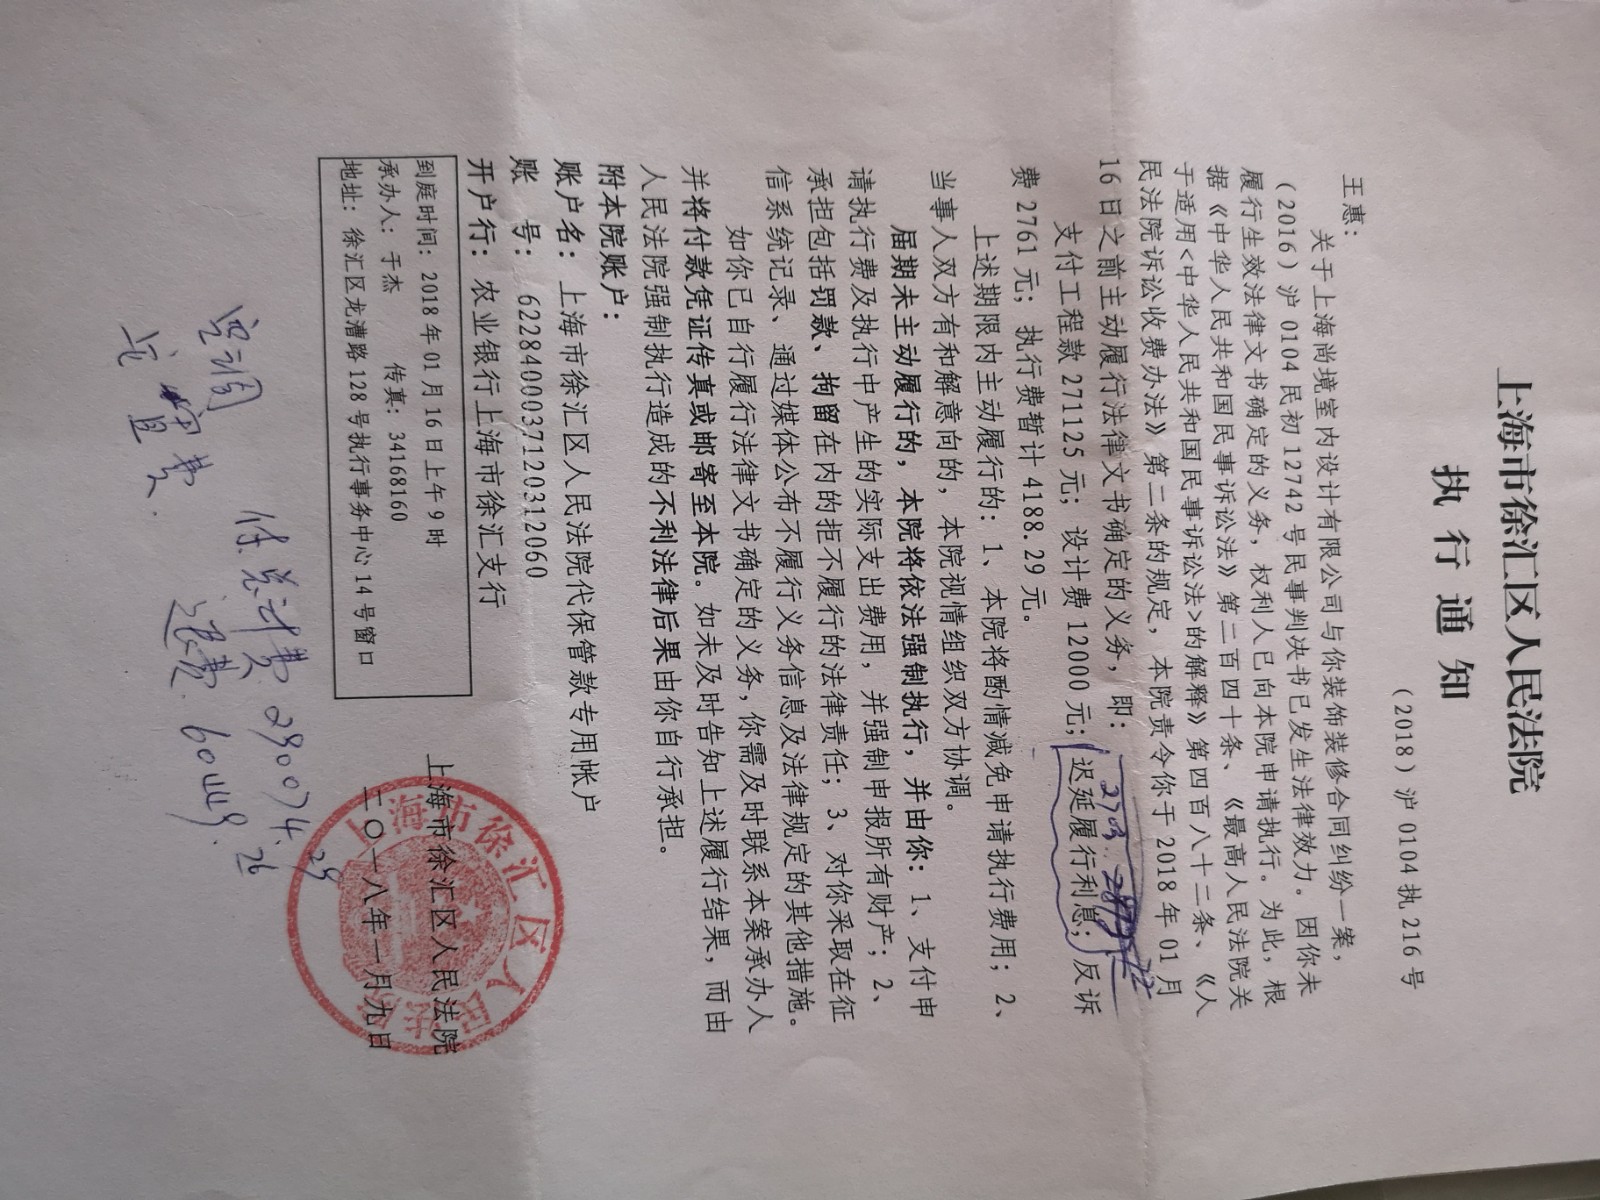 上海市徐汇区人民法院
执行通知
（2018）沪 0104 执 216 号
王惠：
关于上海尚境室内设计有限公司与你装饰装修合同纠纷一案，
（2016）沪 0104 民初 12742 号民事判决书已发生法律效力。因你未
履行生效法律文书确定的义务，权利人已向本院申请执行。为此，根
据《中华人民共和国民事诉讼法》第二百四十条、《最高人民法院关
于适用<中华人民共和国民事诉讼法>的解释》第四百八十二条、《人
民法院诉讼收费办法》第二条的规定，本院责令你于 2018 年 01 月
16 日之前主动履行法律文书确定的义务，即：
支付工程款 271125 元；设计费 12000 元；迟延履行利息；反诉
费 2761 元；执行费暂计 4188.29 元。
上述期限内主动履行的：1、本院将酌情减免申请执行费用；2、
当事人双方有和解意向的，本院视情组织双方协调。
届期未主动履行的，本院将依法强制执行，并由你：1、支付申
请执行费及执行中产生的实际支出费用，并强制申报所有财产；2、
承担包括罚款、拘留在内的拒不履行的法律责任；3、对你采取在征
信系统记录、通过媒体公布不履行义务信息及法律规定的其他措施。
如你已自行履行法律文书确定的义务，你需及时联系本案承办人
并将付款凭证传真或邮寄至本院。如未及时告知上述履行结果，而由
人民法院强制执行造成的不利法律后果由你自行承担。
附本院账户：
账户名：上海市徐汇区人民法院代保管款专用帐户
账 号：6228400037120312060
开户行：农业银行上海市徐汇支行
到庭时间：2018 年 01 月 16 日上午 9 时
承办人：于杰 传真：34168160
地址：徐汇区龙漕路 128 号执行事务中心 14 号窗口
上海市徐汇区人民法院
二〇一八年一月九日
上海市徐汇区人民法院
290074.29